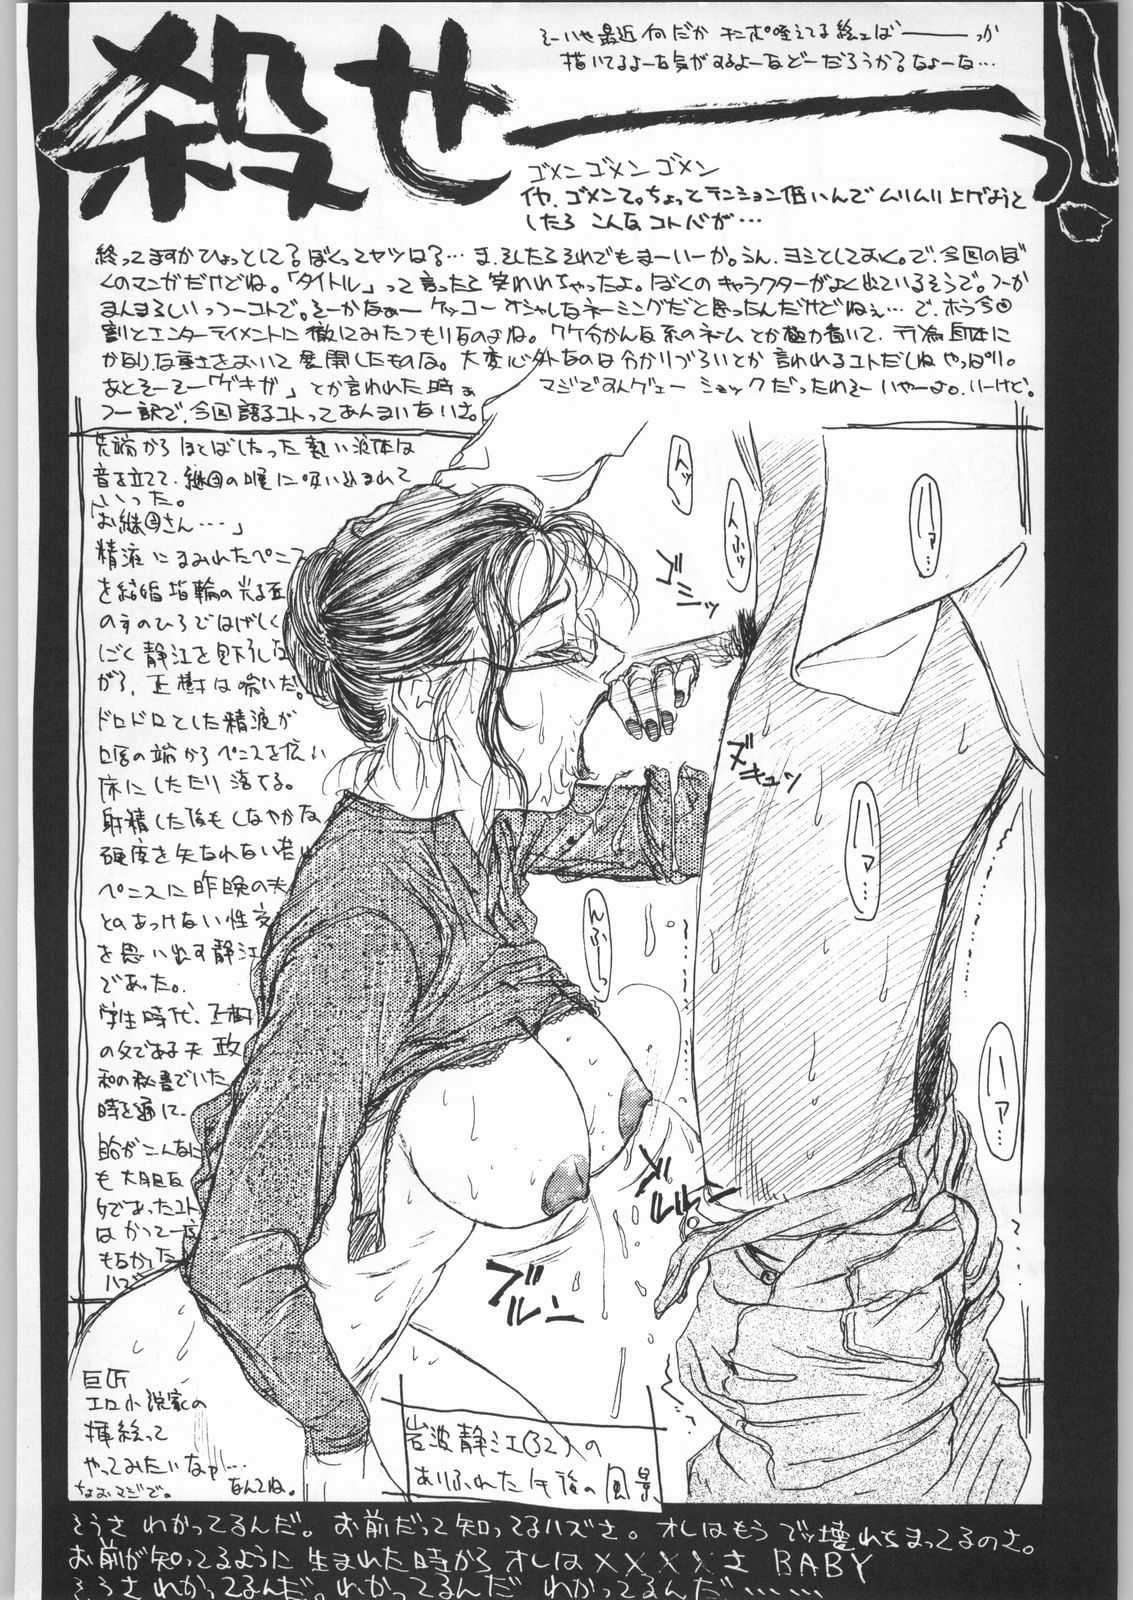 殺せーーっ!!
そーいや最近何だかチンポ咥えてる絵ェばーーーっか
描いてるよーな気がするよーなどーだろうか?なよーな…
ゴメンゴメンゴメン
イヤ、ゴメンて。ちょっとテンション低いんでムリムリ上げようと
したら こんなコトバが…
終ってますかひょっとして?ぼくってヤツは?…ま、そしたらそれでもまーいーか。うん、ヨシとしておく。で、今回のぼ
くのマンガだけどね。「タイトル」って言ったら笑われちゃったよ。ぼくのキャラクターがよく出ているそうで。フーが
まんまらしいっつーコトで。そーかなぁーケッコーオシャレなネーミングだと思ったんだけどねぇ…で、ホラ今回
割とエンターテイメントに徹してみたつもりなのよね。ワケ分かんな系のネームとか極力省いて、行為自体に
かなりな重きをおいて展開したものな。大変心外なのは分かりづらいとか言われるコトだしねやっぱり。
あとそーそー「ゲキガ」とか言われた時ぁ マジですんゲェー ショックだったわそーいやーよ。いーけど。
つー訳で、今回語るコトってあんまいないさ。
先端からほとばしった熱い液体は
音を立てて、継母の喉に吸い込まれて
いった。
「お継母さん‥‥」
精液にまみれたペニス
を結婚指輪の光る左
の手のひらではげしく
しごく静江を見下しな
がら、正樹は喘いだ。
ドロドロとした精液が
口唇の端からペニスを伝い
床にしたたり落てる。
射精した後もしなやかな
硬度を失なわない若い
ペニスに昨晩の夫
とのあっけない性交
を思い出す静江
であった。
学生時代、正樹
の父である夫 政
和の秘書でいた
時を通して、
自分がこんなに
も大胆な
ケであったコト
はかつて一度
もなかった
ハズ
んッ
んぷッ
ゲシッ
ハァ…
ズキュッ
ハァ…
んぶーっ
ハァ…
ズルルン
ブルン
巨匠
エロ小説家の
挿絵って
やってみたいなァ…
なおマジで。
なんてね。
岩波静江(32)の
ありふれた午後の風景
そうさ わかってるんだ。お前だって知ってるハズさ。オレはもう でッ壊れちまってるのさ。
お前が知ってるように 生まれた時から オレは××××さ BABY
そうさ わかってるんだ。わかってるんだ わかってるんだ……